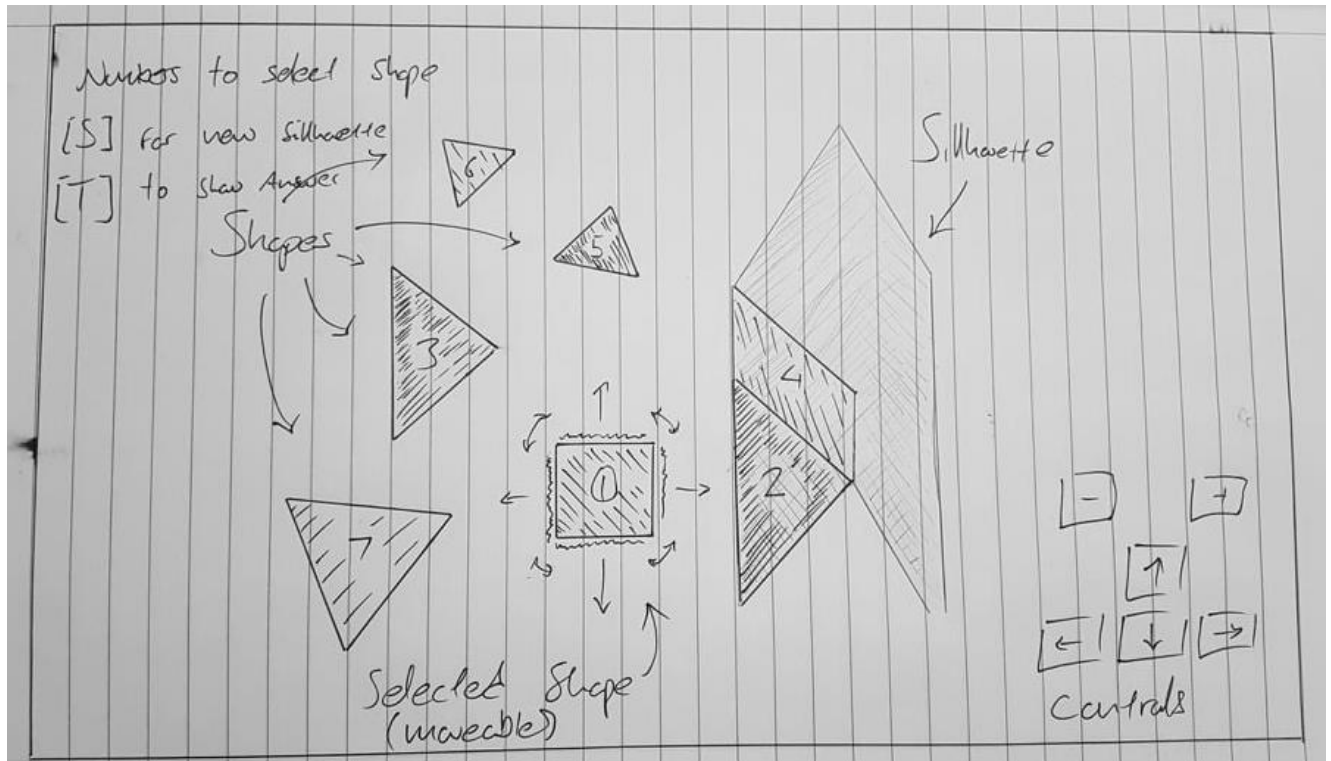 Numbers to select Shape
[S] For new Sillhouette
[T] to show Answer
Shapes
6
5
3
4
2
1
7
Sillhouette
Selected Shape
(moveable)
-
+
↑
← ↓ →
Controls